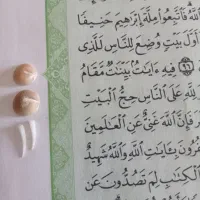 ٱللَّهُ فَٱتَّبِعُوا۟ مِلَّةَ إِبْرَٰهِيمَ حَنِيفًا
أَوَّلَ بَيْتٍ وُضِعَ لِلنَّاسِ لَلَّذِى
فِيهِ ءَايَٰتٌۢ بَيِّنَٰتٌ مَّقَامُ
لِلَّهِ عَلَى ٱلنَّاسِ حِجُّ ٱلْبَيْتِ
فَإِنَّ ٱللَّهَ غَنِىٌّ عَنِ ٱلْعَٰلَمِينَ
فُرُونَ بِـَٔايَٰتِ ٱللَّهِ وَٱللَّهُ شَهِيدٌ
ٱلْكِتَٰبِ لِمَ تَصُدُّونَ عَن